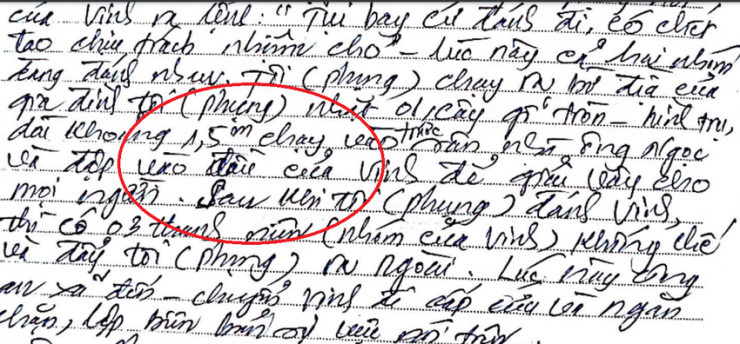 của Vinh ra lệnh: "Tụi bay cứ đánh đi, có chết
tao chịu trách nhiệm cho" – lúc này cả hai nhóm
đang đánh nhau. Tôi (Phụng) chạy ra bờ địa của
gia đình tôi (Phụng) nhặt 01 cây gỗ tròn – hình trụ,
dài khoảng 1,5m chạy vào trước sân nhà ông Ngọc
và đập vào đầu của Vinh để giải vây cho
mọi người. Sau khi tôi (Phụng) đánh Vinh,
thì có 03 thanh niên (nhóm của Vinh) khống chế
và đẩy tôi (Phụng) ra ngoài. Lúc này công
an xã đến – chuyển Vinh đi cấp cứu và ngăn
chặn, lập biên bản vụ việc nói trên.